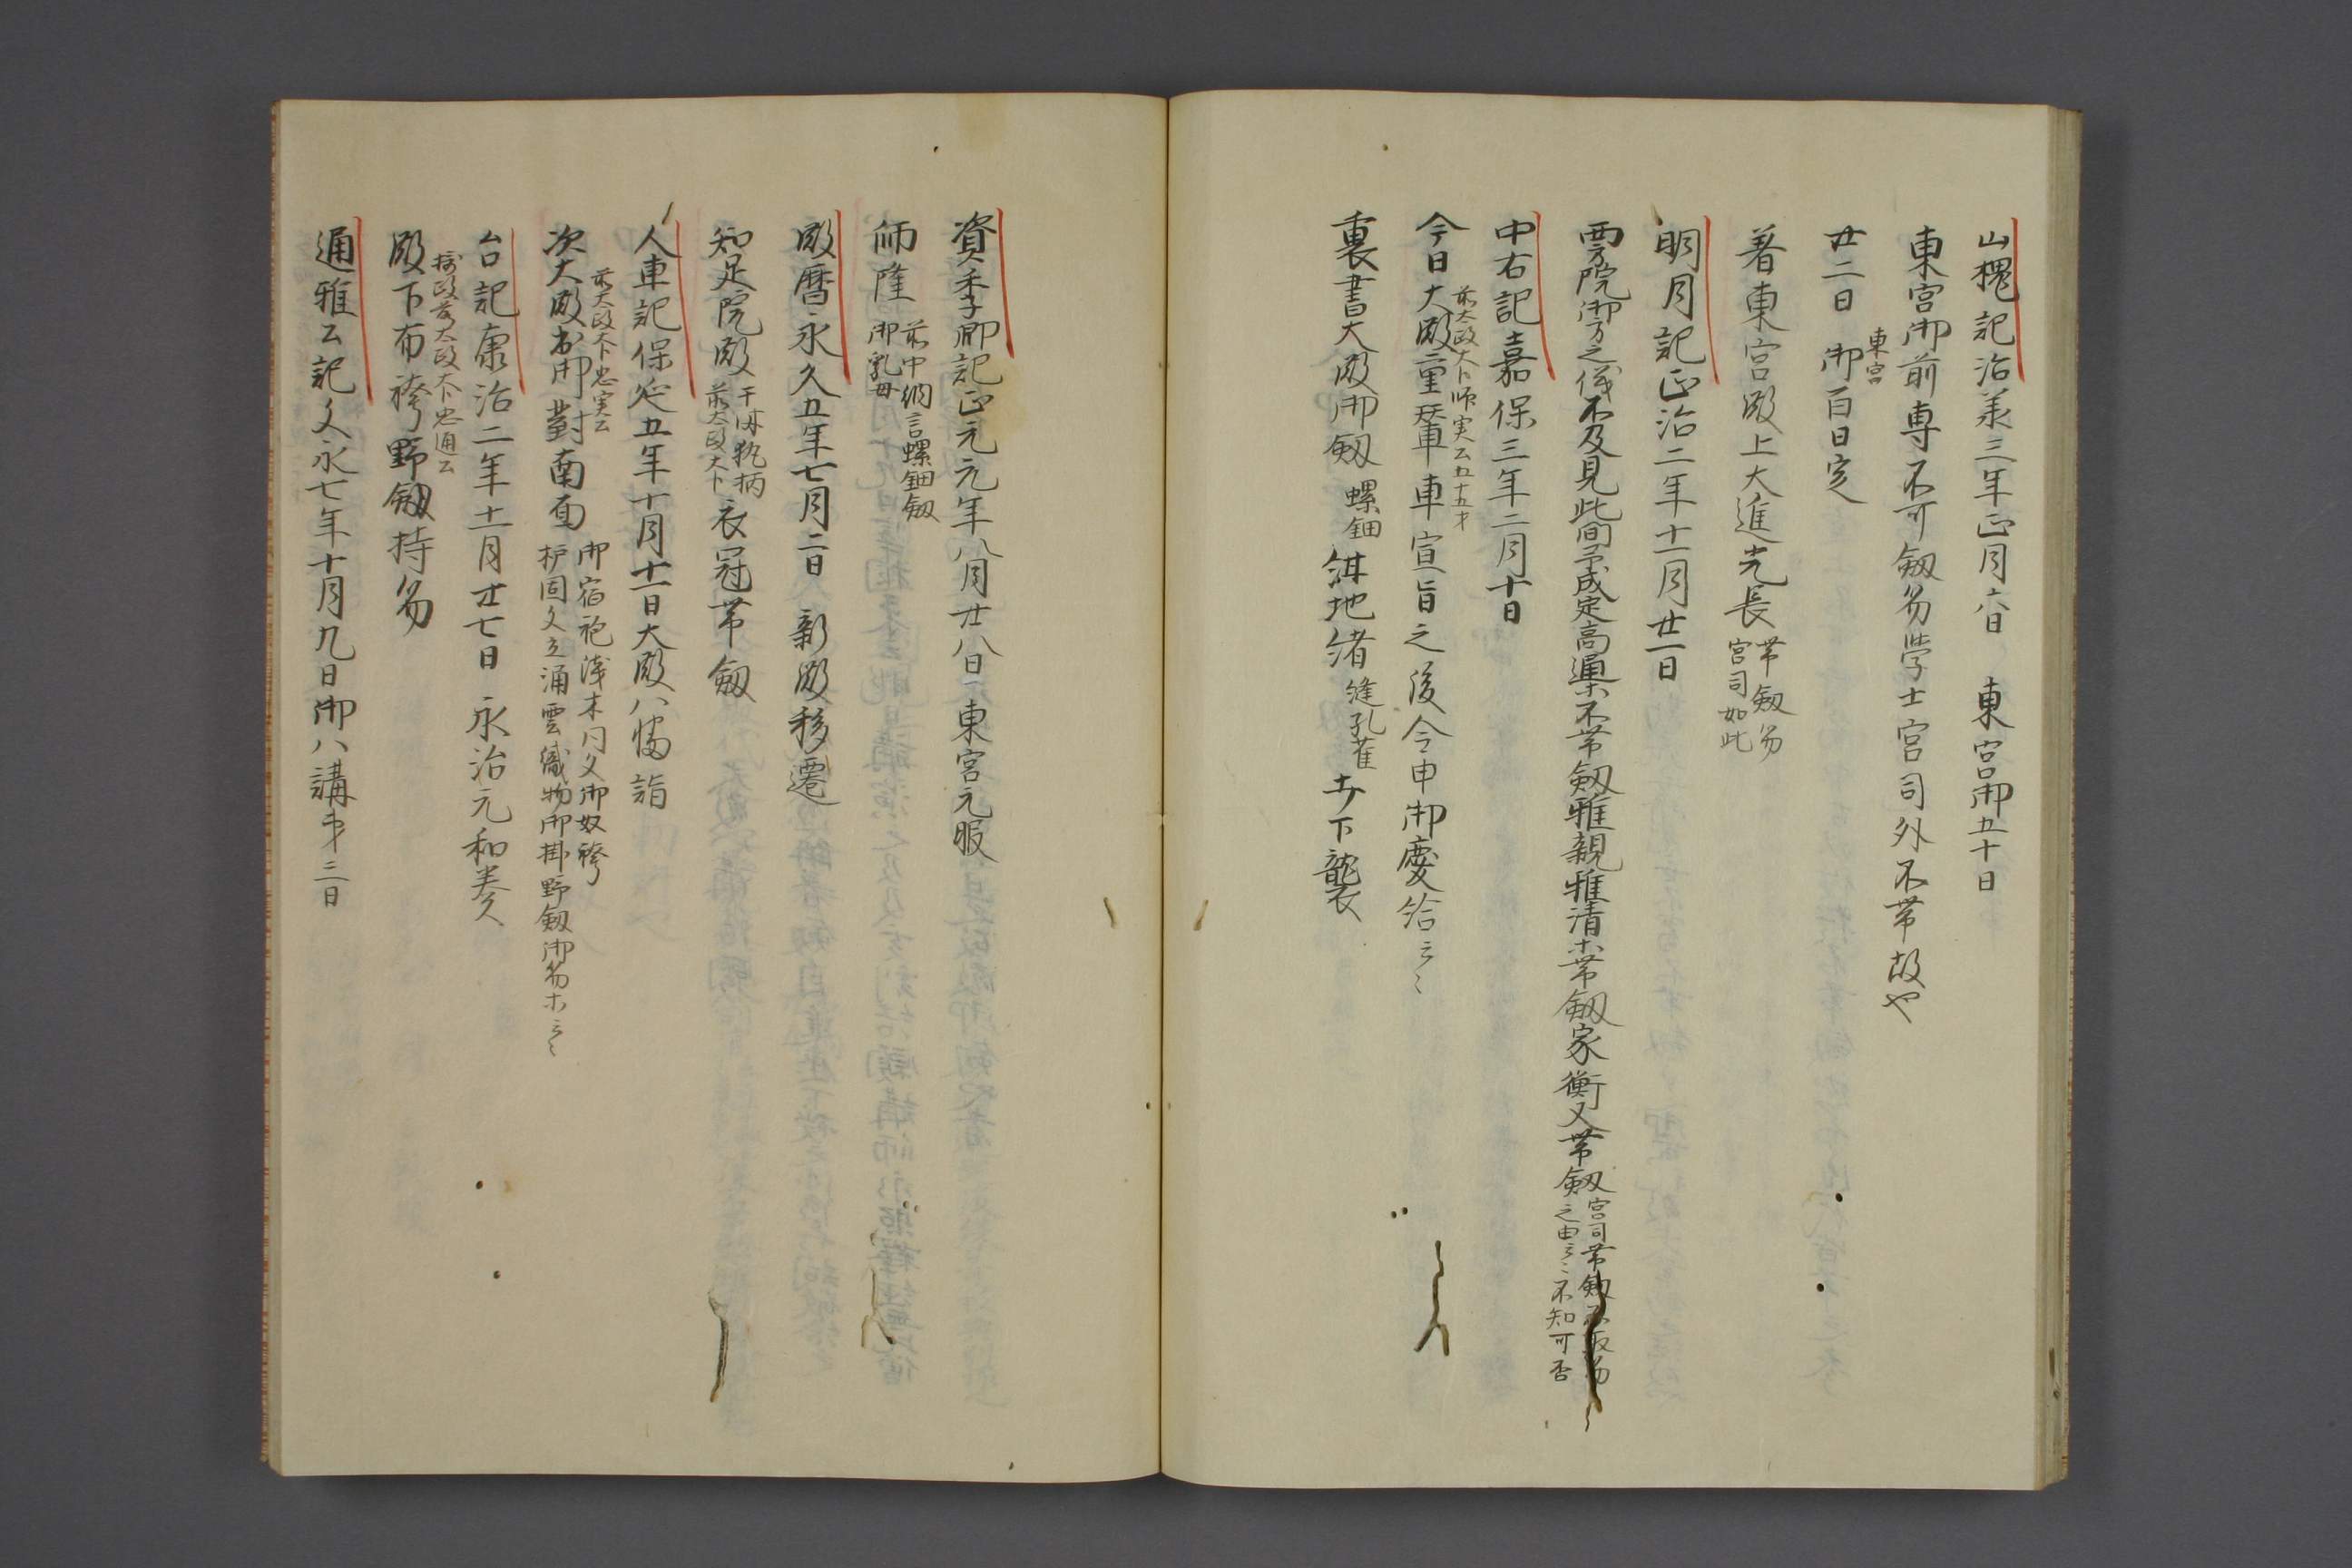 山槐記治承三年正月六日 東宮御五十日
東宮御前専不可劔笏学士宮司外不帯故也
廿二日 東宮御百日定
著東宮殿上大進光長 帯劔笏
宮司如此
明月記正治二年十一月廿一日
西方院御方之儀不及見此間予成定高運木不帯劔雅親雅清木帯劔家衡又帯劔 宮司帯劔
之由云々不知可否
中右記嘉保三年二月十日
前太政大卜師実公五十五才
今日大殿輦車宣旨之後令申御慶給云々
裏書大殿御劔 螺鈿 紺地緒 縫孔雀 下襲
資季卿記正元元年八月廿八日東宮元服
師隆 前中納言螺鈿劔
御乳母
殿暦永久五年七月二日 新殿移遷
知足院殿 于時執柄
前太政大卜 衣冠帯劔
人車記保延五年十月十一日大殿八幡詣
前太政大卜忠実公
次大殿出御対南面 御宿袍浅木円文御奴袴
護固文立涌雲織物御掛野劔御笏木云々
台記康治二年十一月廿七日 永治元和奏
摂政前太政大卜忠通公
殿下布袴野劔持笏
通雅公記文永七年十月九日御八講第三日